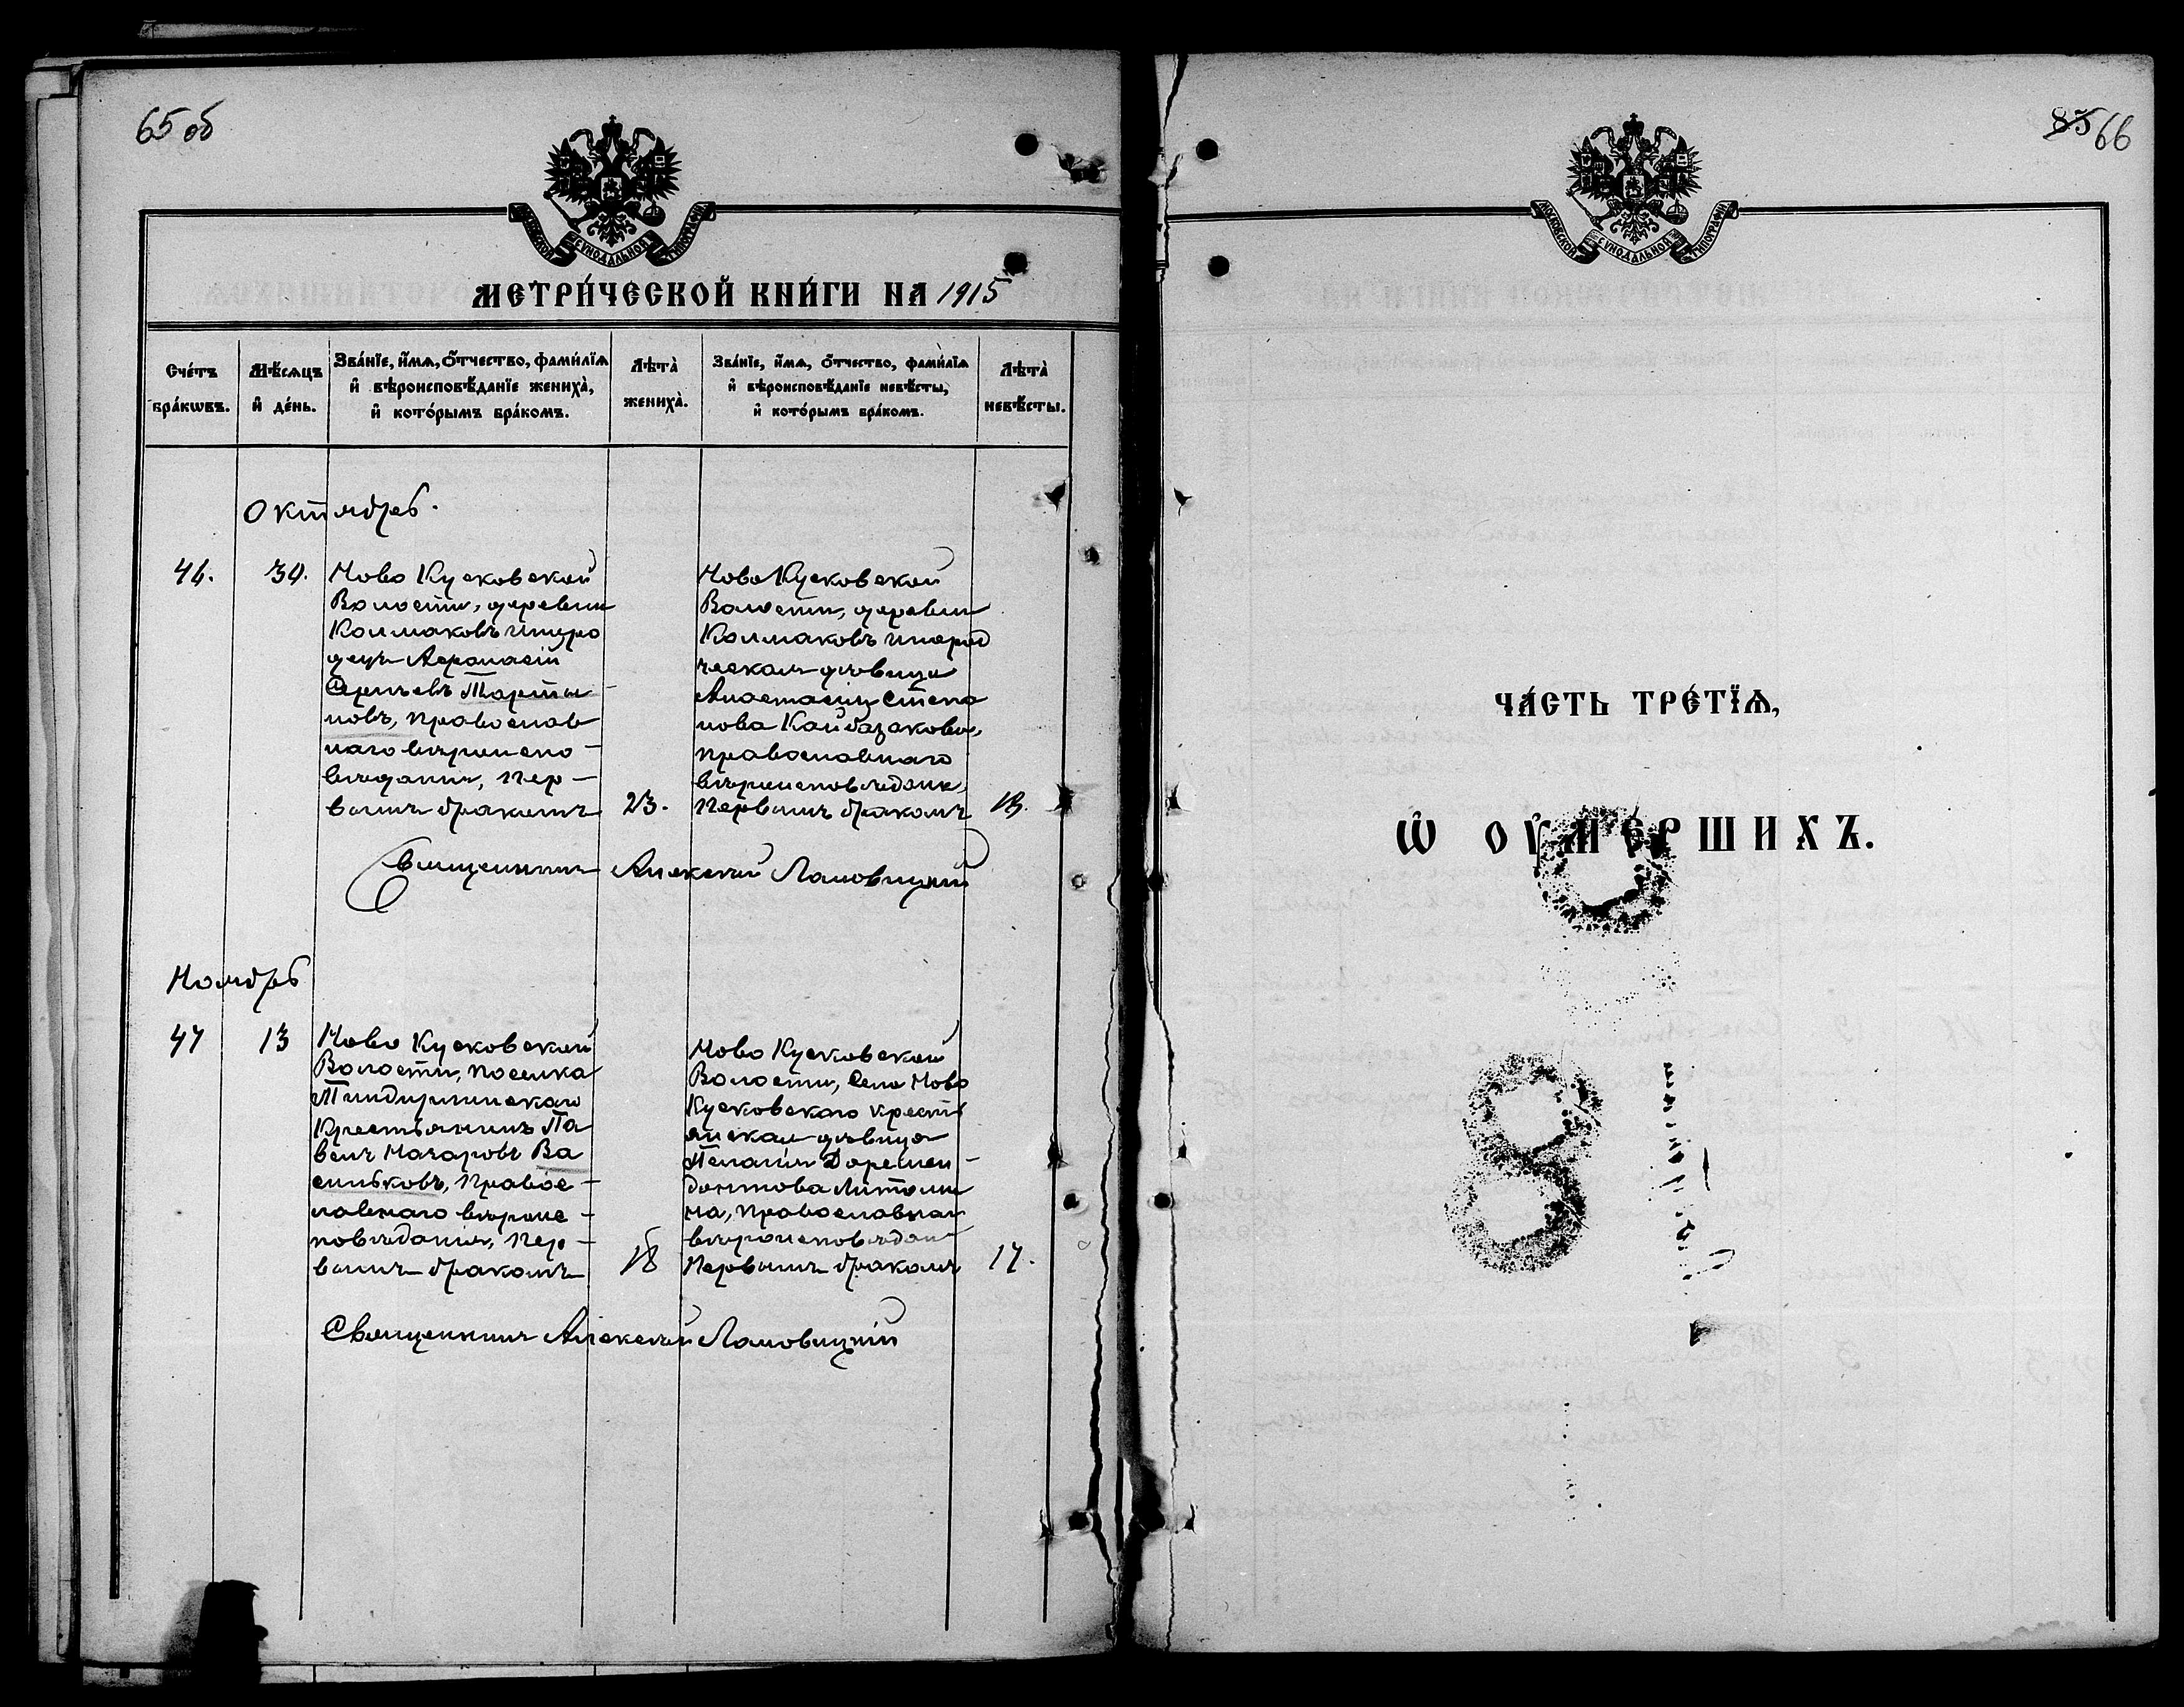 65 об
МОСКОВСКОЙ СѴНОДАЛЬНОЙ ТИПОГРАФІИ
МЕТРИ́ЧЕСКОЙ КНИ́ГИ НА 1915
Сче́тъ бра́кѡвъ.
Мѣ́сѧцъ и҆ де́нь.
Зва́нїе, и҆́мѧ, ѻ҆́тчество, фами́лїѧ и҆ вѣроисповѣ́данїе жениха̀, и҆ кото́рымъ бра́комъ.
Лѣта̀ жениха̀.
Зва́нїе, и҆́мѧ, ѻ҆́тчество, фами́лїѧ и҆ вѣроисповѣ́данїе невѣ́сты, и҆ кото́рымъ бра́комъ.
Лѣта̀ невѣ́сты.
Октябрь.
46. 30.
Ново Кусковской
Волости, деревни
Колмаковъ инеро
децъ Аѳанасій
Сергѣевъ Тарты
новъ, православ
наго вѣроиспо-
вѣданія, пер-
вымъ бракомъ
23.
Ново Кусковской
Волости, деревни
Колмаковъ инерод
ческая дѣвица
Анастасія Степа
нова Кайбазакова,
православнаго
вѣроисповѣданія,
Первымъ бракомъ
Священникъ Алексѣй Ламовицкій
Ноябрь
47 13
Ново Кусковской
Волости, поселка
Крестьянинъ Па
велъ Назаровъ Ва
сильковъ, Правос-
лавнаго вѣроис-
повѣданія, пер-
вымъ бракомъ
18
Ново Кусковской
Волости, Села Ново
Кусковскаго крестья
янская дѣвица
Пелагія
православнаго
вѣроисповѣдан
Первымъ бракомъ
17.
Священникъ Алексѣй Ламовицкій
85 66
МОСКОВСКОЙ СѴНОДАЛЬНОЙ ТИПОГРАФІИ
ЧА́СТЬ ТРЕ́ТЇѦ,
Ѡ҆ ОУ҆МЕ́РШИХЪ.